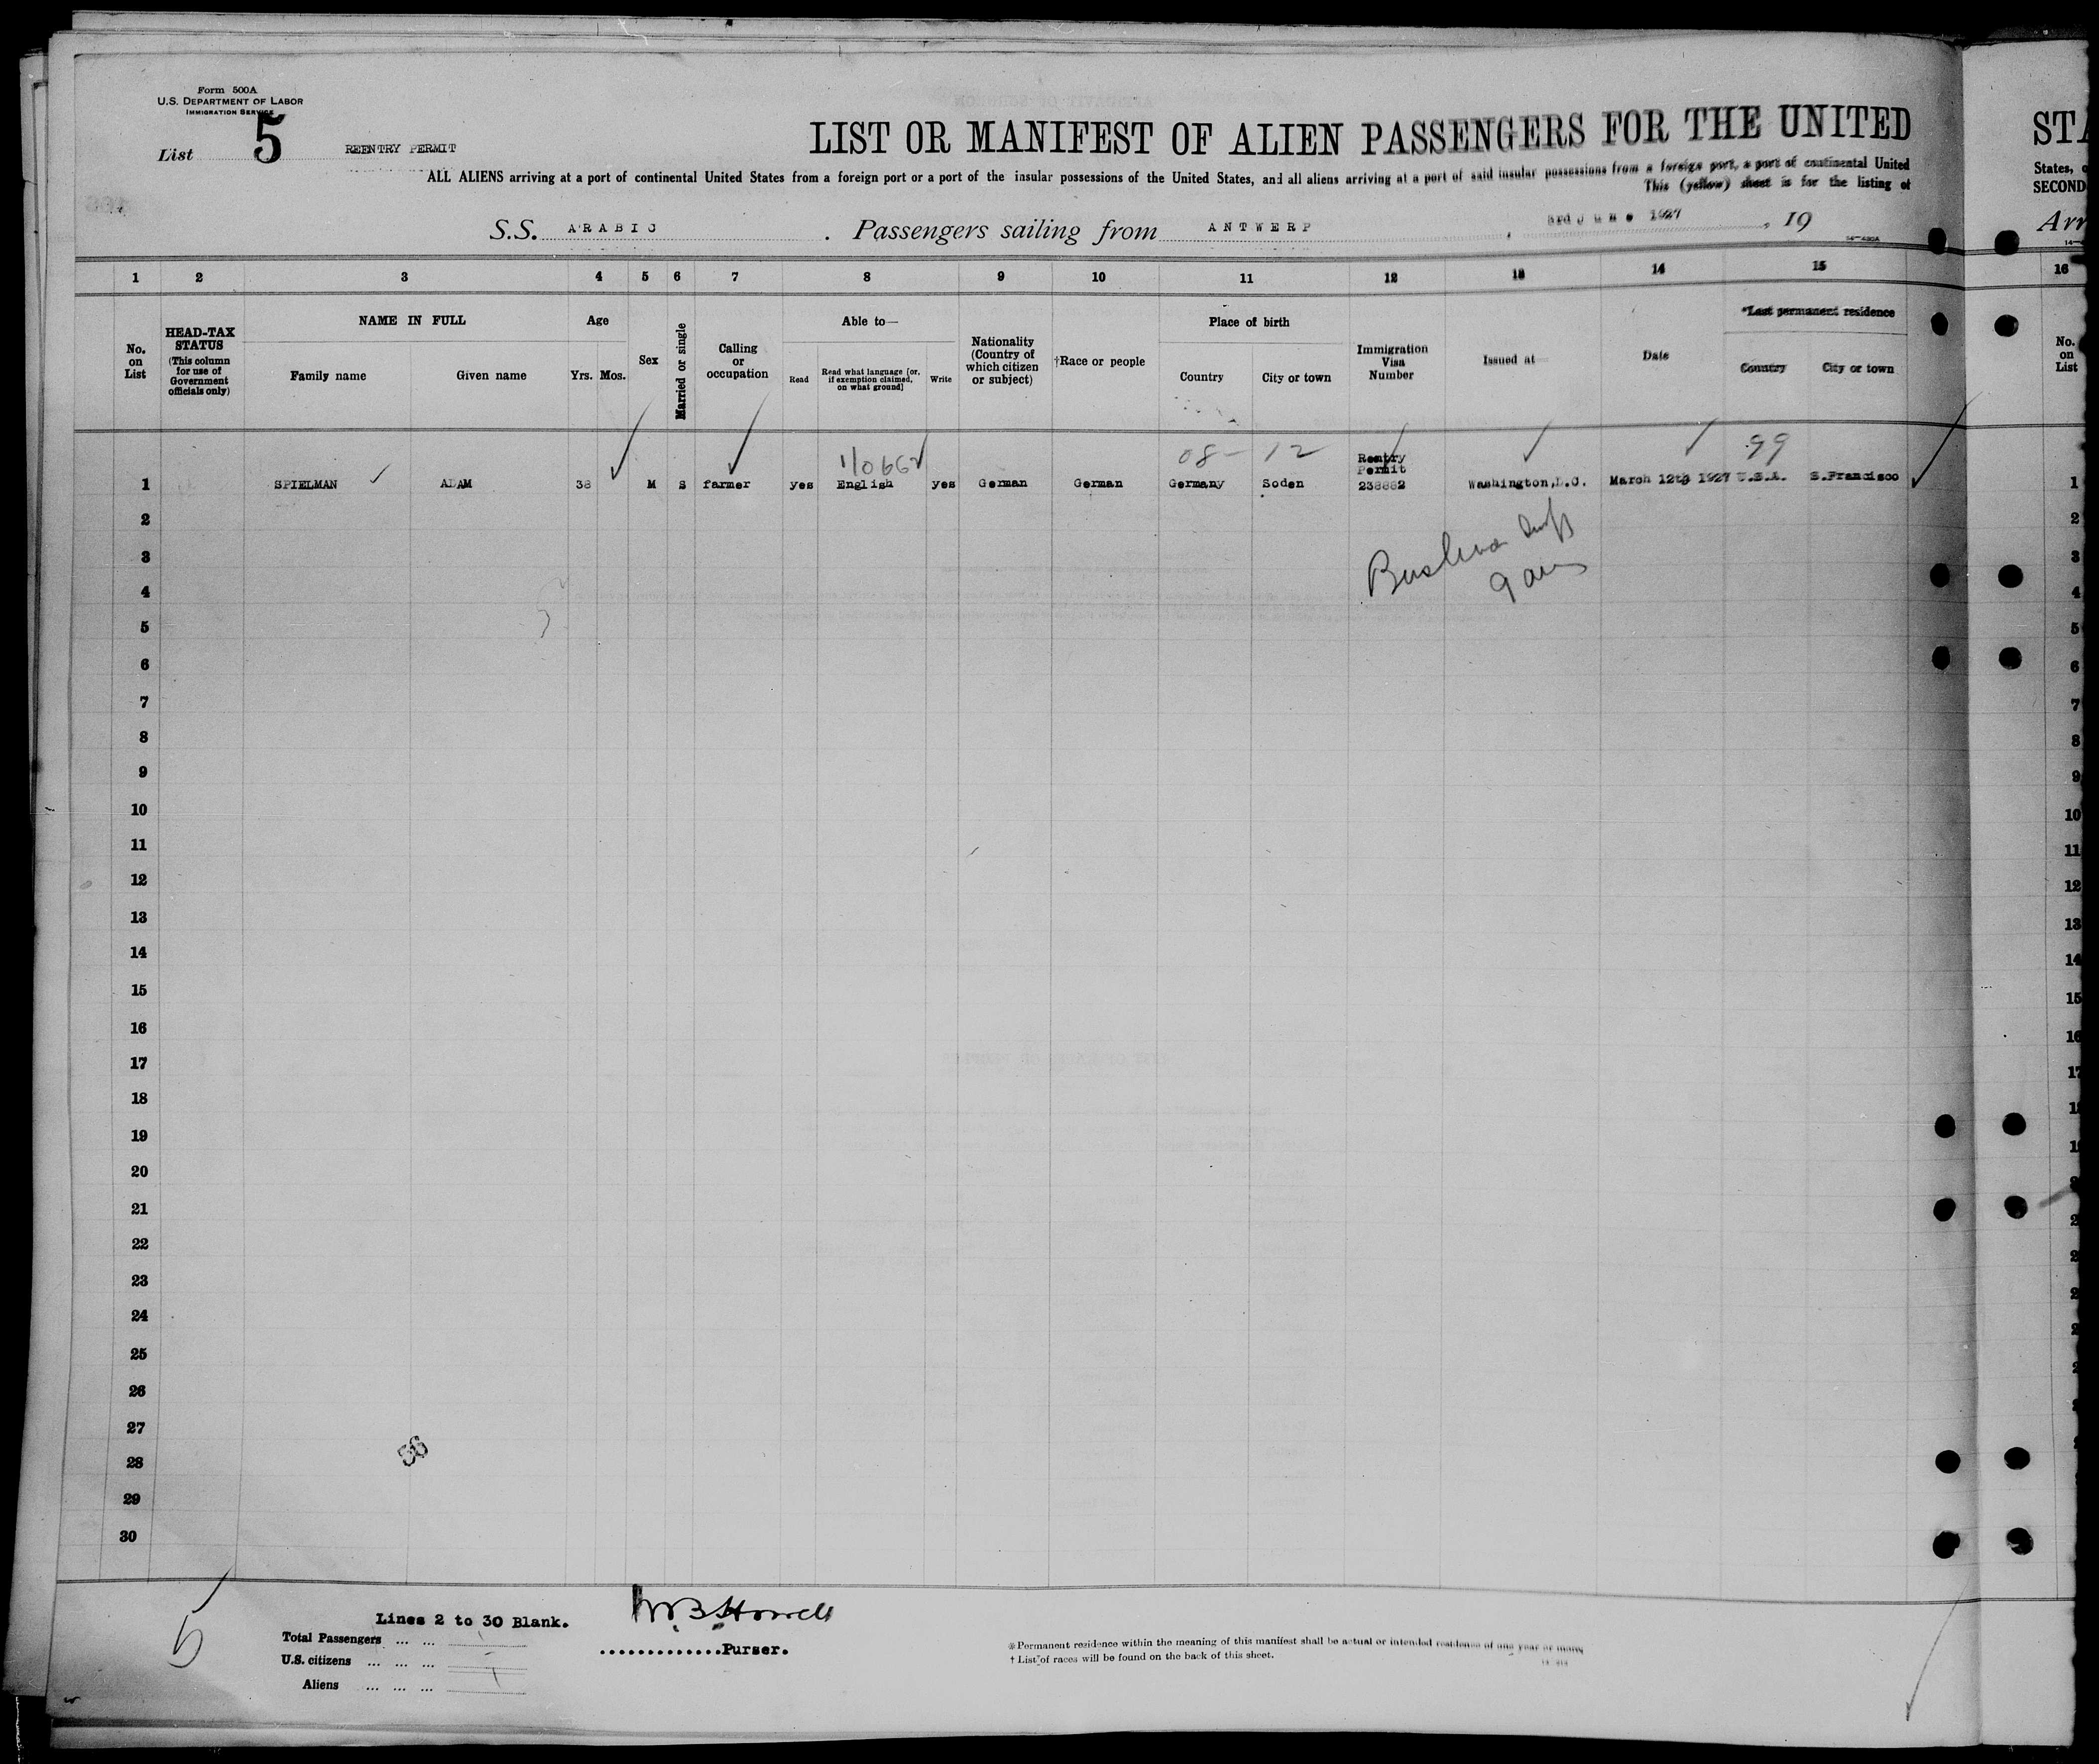 Form 500A
U.S. DEPARTMENT OF LABOR
IMMIGRATION SERVICE
List 5 REENTRY PERMIT
LIST OR MANIFEST OF ALIEN PASSENGERS FOR THE UNITED
ALL ALIENS arriving at a port of continental United States from a foreign port or a port of the insular possessions of the United States, and all aliens arriving at a port of said insular possessions from a foreign port, a port of continental United
This (yellow) sheet is for the listing of
S.S. ARABIC . Passengers sailing from ANTWERP , 3rd June 1927 , 19
14-430A
STA
States, o
SECOND
Arr
14-4
1 2 3 4 5 6 7 8 9 10 11 12 13 14 15 16
No. on List
HEAD-TAX STATUS
(This column for use of Government officials only)
NAME IN FULL
Family name Given name
Age
Yrs. Mos.
Sex
Married or single
Calling or occupation
Able to—
Read Read what language [or, if exemption claimed, on what ground] Write
Nationality (Country of which citizen or subject)
†Race or people
Place of birth
Country City or town
Immigration Visa Number
Issued at
Date
*Last permanent residence
Country City or town
No. on List
08- 12 99
Reentry
Permit
1 SPIELMAN ADAM 38 M S farmer yes English yes German German Germany Soden 238882 Washington,D.C. March 12th 1927 U.S.A. S.Francisco 1
2 2
3 3
4 4
5 5
6 6
7 7
8 8
9 9
10 10
11 11
12 12
13 13
14 14
15 15
16 16
17 17
18 18
19 19
20 2
21 2
22 2
23 2
24 2
25 2
26 2
27
28
29
30
56
5
Lines 2 to 30 Blank.
Total Passengers ... ...
U.S. citizens ... ... ... -
Aliens ... ... ...
W B Howell
.............Purser.
*Permanent residence within the meaning of this manifest shall be actual or intended residence of one year or more.
† List of races will be found on the back of this sheet.